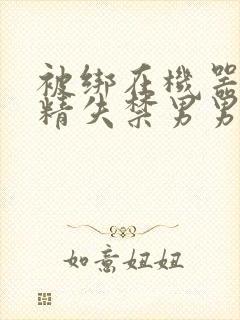 被绑在機器
精失禁男男
如意妞妞